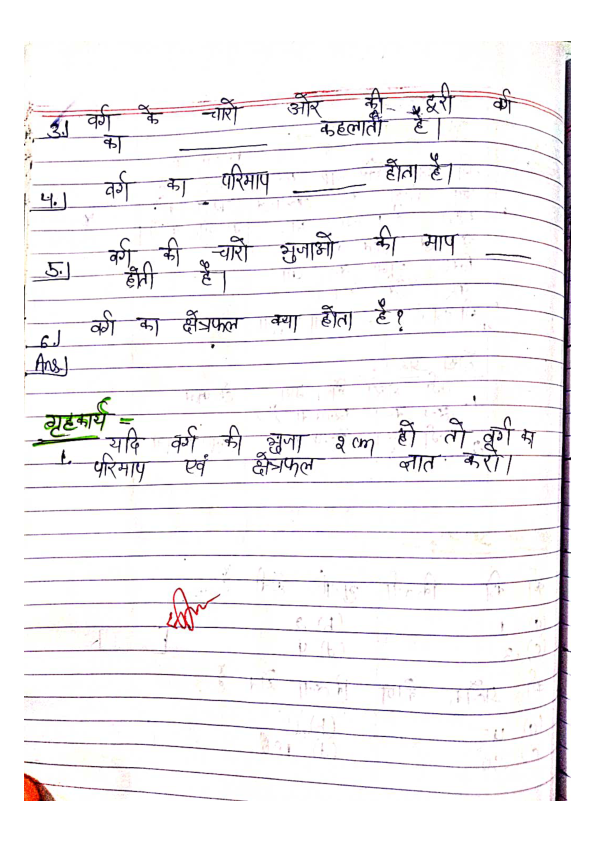 3.) वर्ग के चारो ओर की दूरी वर्ग
का ______ कहलाती है।
4.) वर्ग का परिमाप ______ होता है।
5.) वर्ग की चारो भुजाओं की माप ____
होती है।
6.) वर्ग का क्षेत्रफल क्या होता है?
Ans.)
गृहकार्य =
1. यदि वर्ग की भुजा 2 cm हो तो वर्ग का
परिमाप एवं क्षेत्रफल ज्ञात करो।